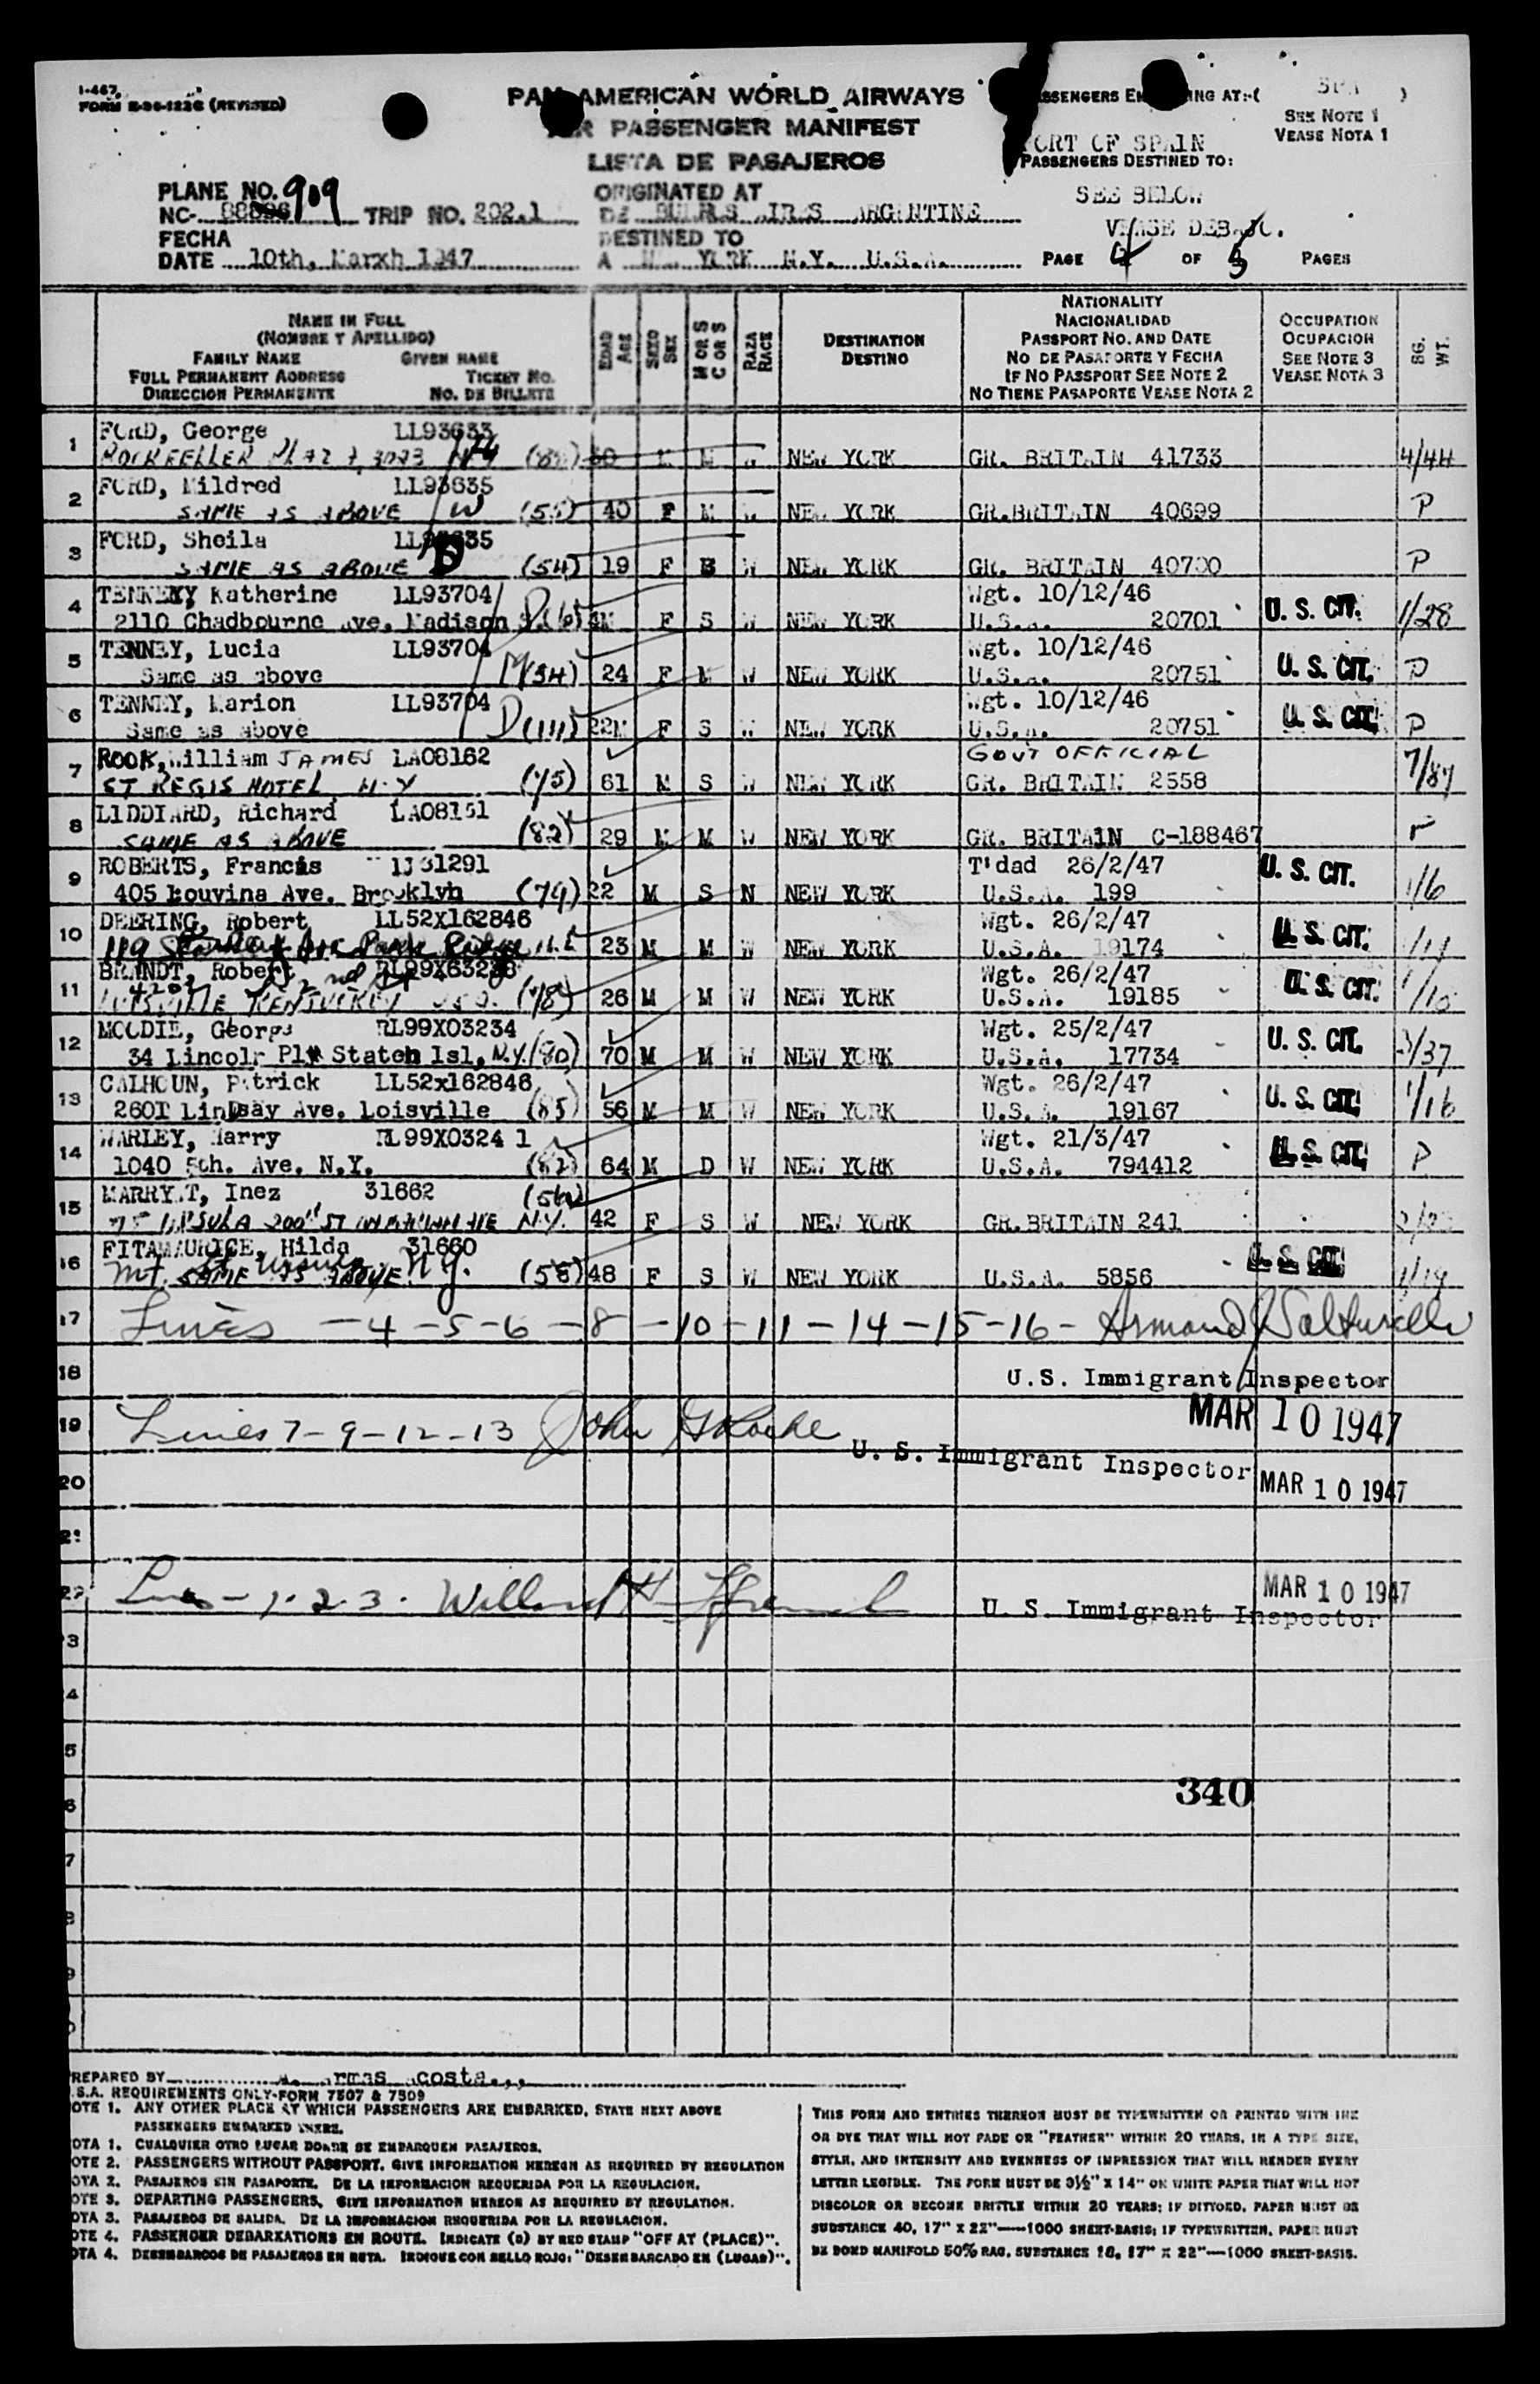 I-467
FORM E-96-122G (REVISED)
PAN AMERICAN WORLD AIRWAYS
AIR PASSENGER MANIFEST
LISTA DE PASAJEROS
SEE NOTE 1
VEASE NOTA 1
PORT OF SPAIN
PASSENGERS DESTINED TO:
SEE BELOW
VEASE DEBAJO.
PLANE NO. 909
NC- TRIP NO. 202.1
ORIGINATED AT
DE BUENOS AIRES ARGENTINE
FECHA
DATE 10th, Marxh 1947
DESTINED TO
A NEW YORK N.Y. U.S.A.
PAGE 4 OF 5 PAGES
NAME IN FULL
(NOMBRE Y APELLIDO)
FAMILY NAME GIVEN NAME
FULL PERMANENT ADDRESS TICKET NO.
DIRECCION PERMANENTE NO. DE BILLETE
EDAD AGE
SEXO SEX
M OR S C OR S
RAZA RACE
DESTINATION
DESTINO
NATIONALITY
NACIONALIDAD
PASSPORT NO. AND DATE
NO DE PASAPORTE Y FECHA
IF NO PASSPORT SEE NOTE 2
NO TIENE PASAPORTE VEASE NOTA 2
OCCUPATION
OCUPACION
SEE NOTE 3
VEASE NOTA 3
BG. WT.
1 FORD, George LL93633
ROCKFELLER PLAZA, 3023 NEW YORK GR. BRITAIN 41733 4/44
2 FORD, Mildred LL93635
SAME AS ABOVE W (55) 40 F M W NEW YORK GR.BRITAIN 40699 P
3 FORD, Sheila
SAME AS ABOVE D (54) 19 F W NEW YORK GR. BRITAIN 40700 P
4 TENNEY, Katherine LL93704 Wgt. 10/12/46
2110 Chadbourne Ave, Madison F S W NEW YORK U.S.A. 20701 U. S. CIT. 1/28
5 TENNEY, Lucia LL93704 Wgt. 10/12/46
Same as above M(54) 24 F M W NEW YORK U.S.A. 20751 U. S. CIT. P
6 TENNEY, Marion LL93704 Wgt. 10/12/46
Same as above D(111) 22M F S W NEW YORK U.S.A. 20751 U. S. CIT. P
7 ROOK, William JAMES LA08162 GOVT OFFICIAL
ST REGIS HOTEL N.Y (75) 61 M S W NEW YORK GR. BRITAIN 2558 7/87
8 LIDDIARD, Richard LA08151
SAME AS ABOVE (82) 29 M M W NEW YORK GR. BRITAIN C-188467
9 ROBERTS, Francis 31291 T'dad 26/2/47
405 Louvina Ave. Brooklyn (74) 22 M S N NEW YORK U.S.A. 199 U. S. CIT. 1/6
10 DEERING, Robert LL52X162846 Wgt. 26/2/47
119 Park Ridge 23 M M W NEW YORK U.S.A. 19174 U. S. CIT. 1/11
11 BRANDT, Robert Wgt. 26/2/47
LOUISVILLE KENTUCKEY (78) 26 M M W NEW YORK U.S.A. 19185 U. S. CIT. 1/10
12 MOODIE, George RL99X03234 Wgt. 25/2/47
34 Lincoln Pl. Staten Isl, N.Y. (80) 70 M M W NEW YORK U.S.A. 17734 U. S. CIT. 3/37
13 CALHOUN, Patrick LL52x162846 Wgt. 26/2/47
2601 Lindsay Ave. Loisville (85) 56 M M W NEW YORK U.S.A. 19167 U. S. CIT. 1/16
14 WARLEY, Harry RL99X0324 1 Wgt. 21/3/47
1040 5th. Ave. N.Y. (82) 64 M D W NEW YORK U.S.A. 794412 U. S. CIT. P
15 MARRYAT, Inez 31662
MT URSULA 200th ST N.Y. 42 F S W NEW YORK GR.BRITAIN 241
16 FITAMAURICE, Hilda 31660
Mt. St. Ursula N.Y. SAME AS ABOVE (58) 48 F S W NEW YORK U.S.A. 5856 U. S. CIT. 1/19
17 Lines -4-5-6-8-10-11-14-15-16- Armand
18 U.S. Immigrant Inspector
MAR 10 1947
19 Lines 7-9-12-13 John
U. S. Immigrant Inspector
20 MAR 10 1947
22 Lines - 1.2.3. Willard H.
MAR 10 1947
U. S. Immigrant Inspector
340
PREPARED BY Armas Acosta
U.S.A. REQUIREMENTS ONLY-FORM 7507 & 7509
NOTE 1. ANY OTHER PLACE AT WHICH PASSENGERS ARE EMBARKED, STATE NEXT ABOVE
PASSENGERS EMBARKED THERE.
NOTA 1. CUALQUIER OTRO LUGAR DONDE SE EMBARQUEN PASAJEROS.
NOTE 2. PASSENGERS WITHOUT PASSPORT, GIVE INFORMATION HEREON AS REQUIRED BY REGULATION
NOTA 2. PASAJEROS SIN PASAPORTE. DE LA INFORMACION REQUERIDA POR LA REGULACION.
NOTE 3. DEPARTING PASSENGERS, GIVE INFORMATION HEREON AS REQUIRED BY REGULATION.
NOTA 3. PASAJEROS DE SALIDA. DE LA INFORMACION REQUERIDA POR LA REGULACION.
NOTE 4. PASSENGER DEBARKATIONS EN ROUTE. INDICATE (D) BY RED STAMP "OFF AT (PLACE)".
NOTA 4. DESEMBARCOS DE PASAJEROS EN RUTA. INDIQUE CON SELLO ROJO: "DESEMBARCADO EN (LUGAR)".
THIS FORM AND ENTRIES THEREON MUST BE TYPEWRITTEN OR PRINTED WITH INK
OR DYE THAT WILL NOT FADE OR "FEATHER" WITHIN 20 YEARS, IN A TYPE SIZE,
STYLE, AND INTENSITY AND EVENNESS OF IMPRESSION THAT WILL RENDER EVERY
LETTER LEGIBLE. THE FORM MUST BE 8½" X 14" ON WHITE PAPER THAT WILL NOT
DISCOLOR OR BECOME BRITTLE WITHIN 20 YEARS; IF DITTOED, PAPER MUST BE
SUBSTANCE 40, 17" X 22"—1000 SHEET-BASIS; IF TYPEWRITTEN, PAPER MUST
BE BOND MANIFOLD 50% RAG, SUBSTANCE 16, 17" X 22"—1000 SHEET-BASIS.